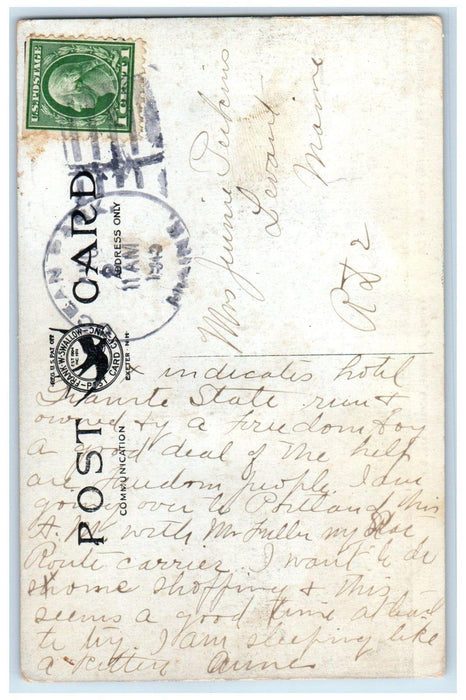 U.S. POSTAGE
1 CENT 1
OCEAN PARK
11 AM
MAINE
POST CARD
ADDRESS ONLY
COMMUNICATION
REG. U.S. PAT. OFF
FRANK W. SWALLOW
POST CARD CO. INC.
EXETER N.H.
Mrs Jennie Perkins
Levant
Maine
RD 2
x indicates hotel
Granite State run &
owned by a Freedom boy
a good deal of the help
are Freedom people. I am
going over to Portland this
A.M. with Mr Fuller my
Route carrier. I want to do
some shopping & this
seems a good time at least
to try. I am sleeping like
a kitten